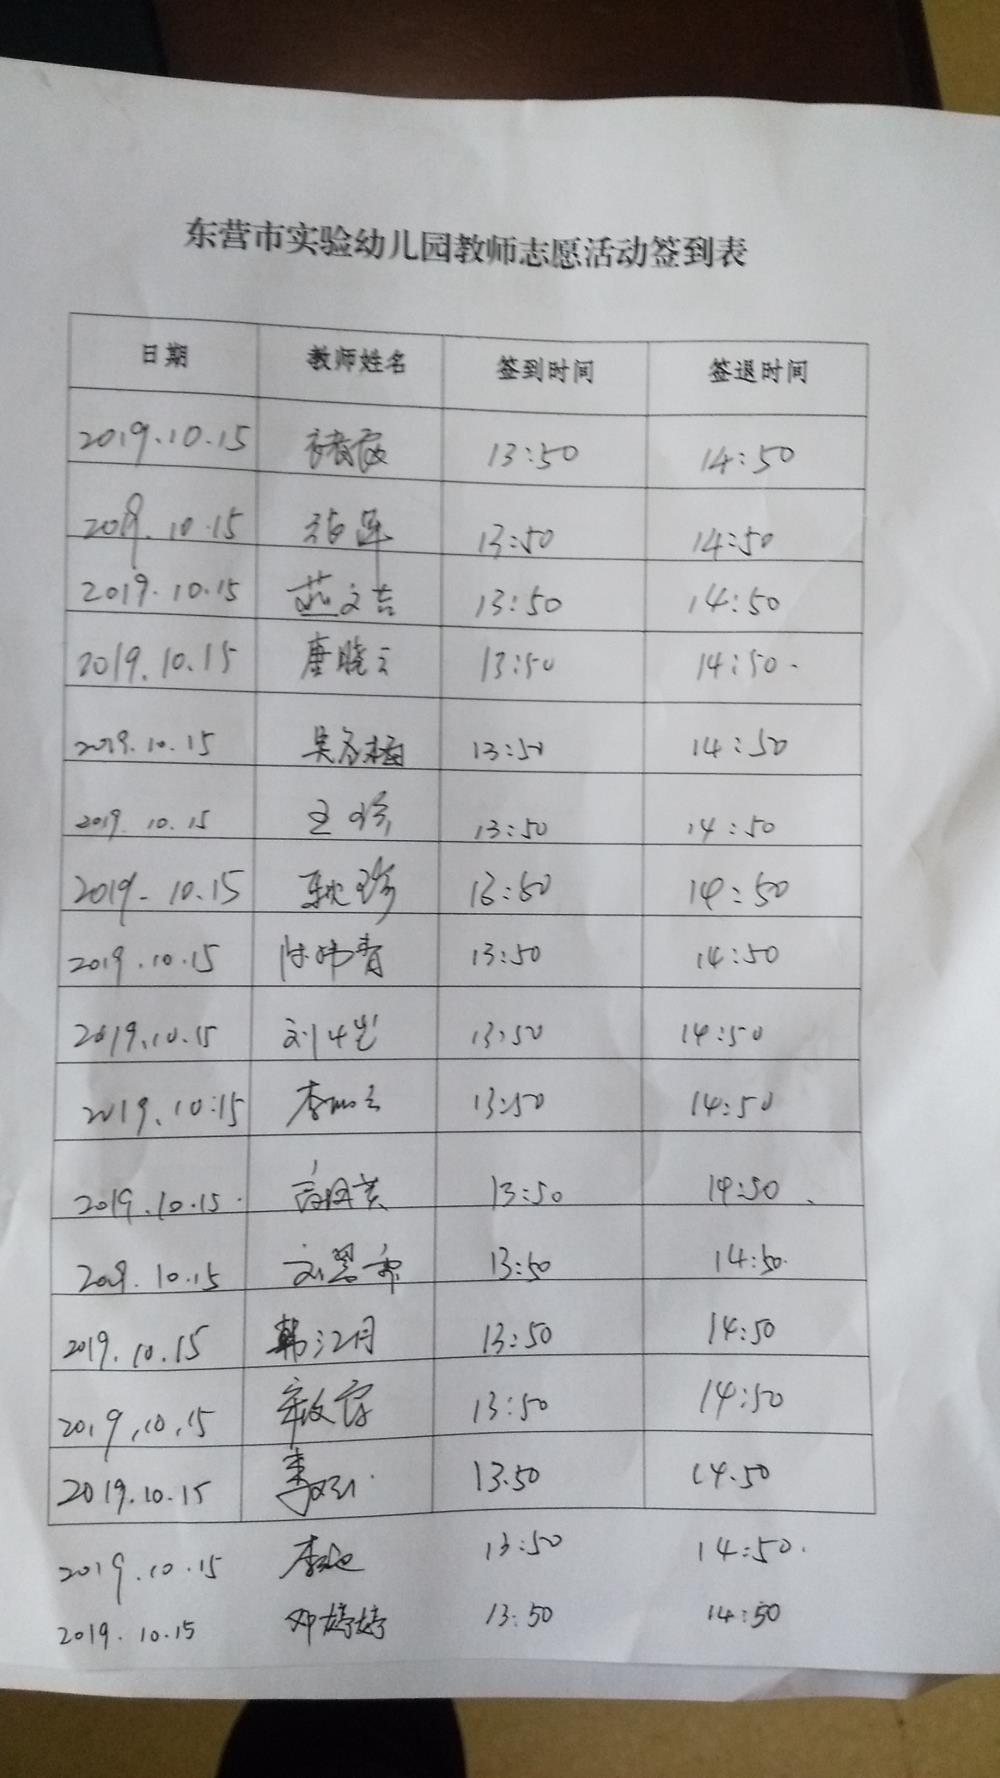 东营市实验幼儿园教师志愿活动签到表
日期 教师姓名 签到时间 签退时间
2019.10.15 13:50 14:50
2019.10.15 13:50 14:50
2019.10.15 13:50 14:50
2019.10.15 唐晓云 13:50 14:50
2019.10.15 13:50 14:50
2019.10.15 王珍 13:50 14:50
2019.10.15 耿珍 13:50 14:50
2019.10.15 13:50 14:50
2019.10.15 13:50 14:50
2019.10:15 13:50 14:50
2019.10.15 13:50 14:50
2019.10.15 13:50 14:50
2019.10.15 韩江月 13:50 14:50
2019.10.15 13:50 14:50
2019.10.15 13.50 14.50
2019.10.15 13:50 14:50
2019.10.15 邓婷婷 13:50 14:50